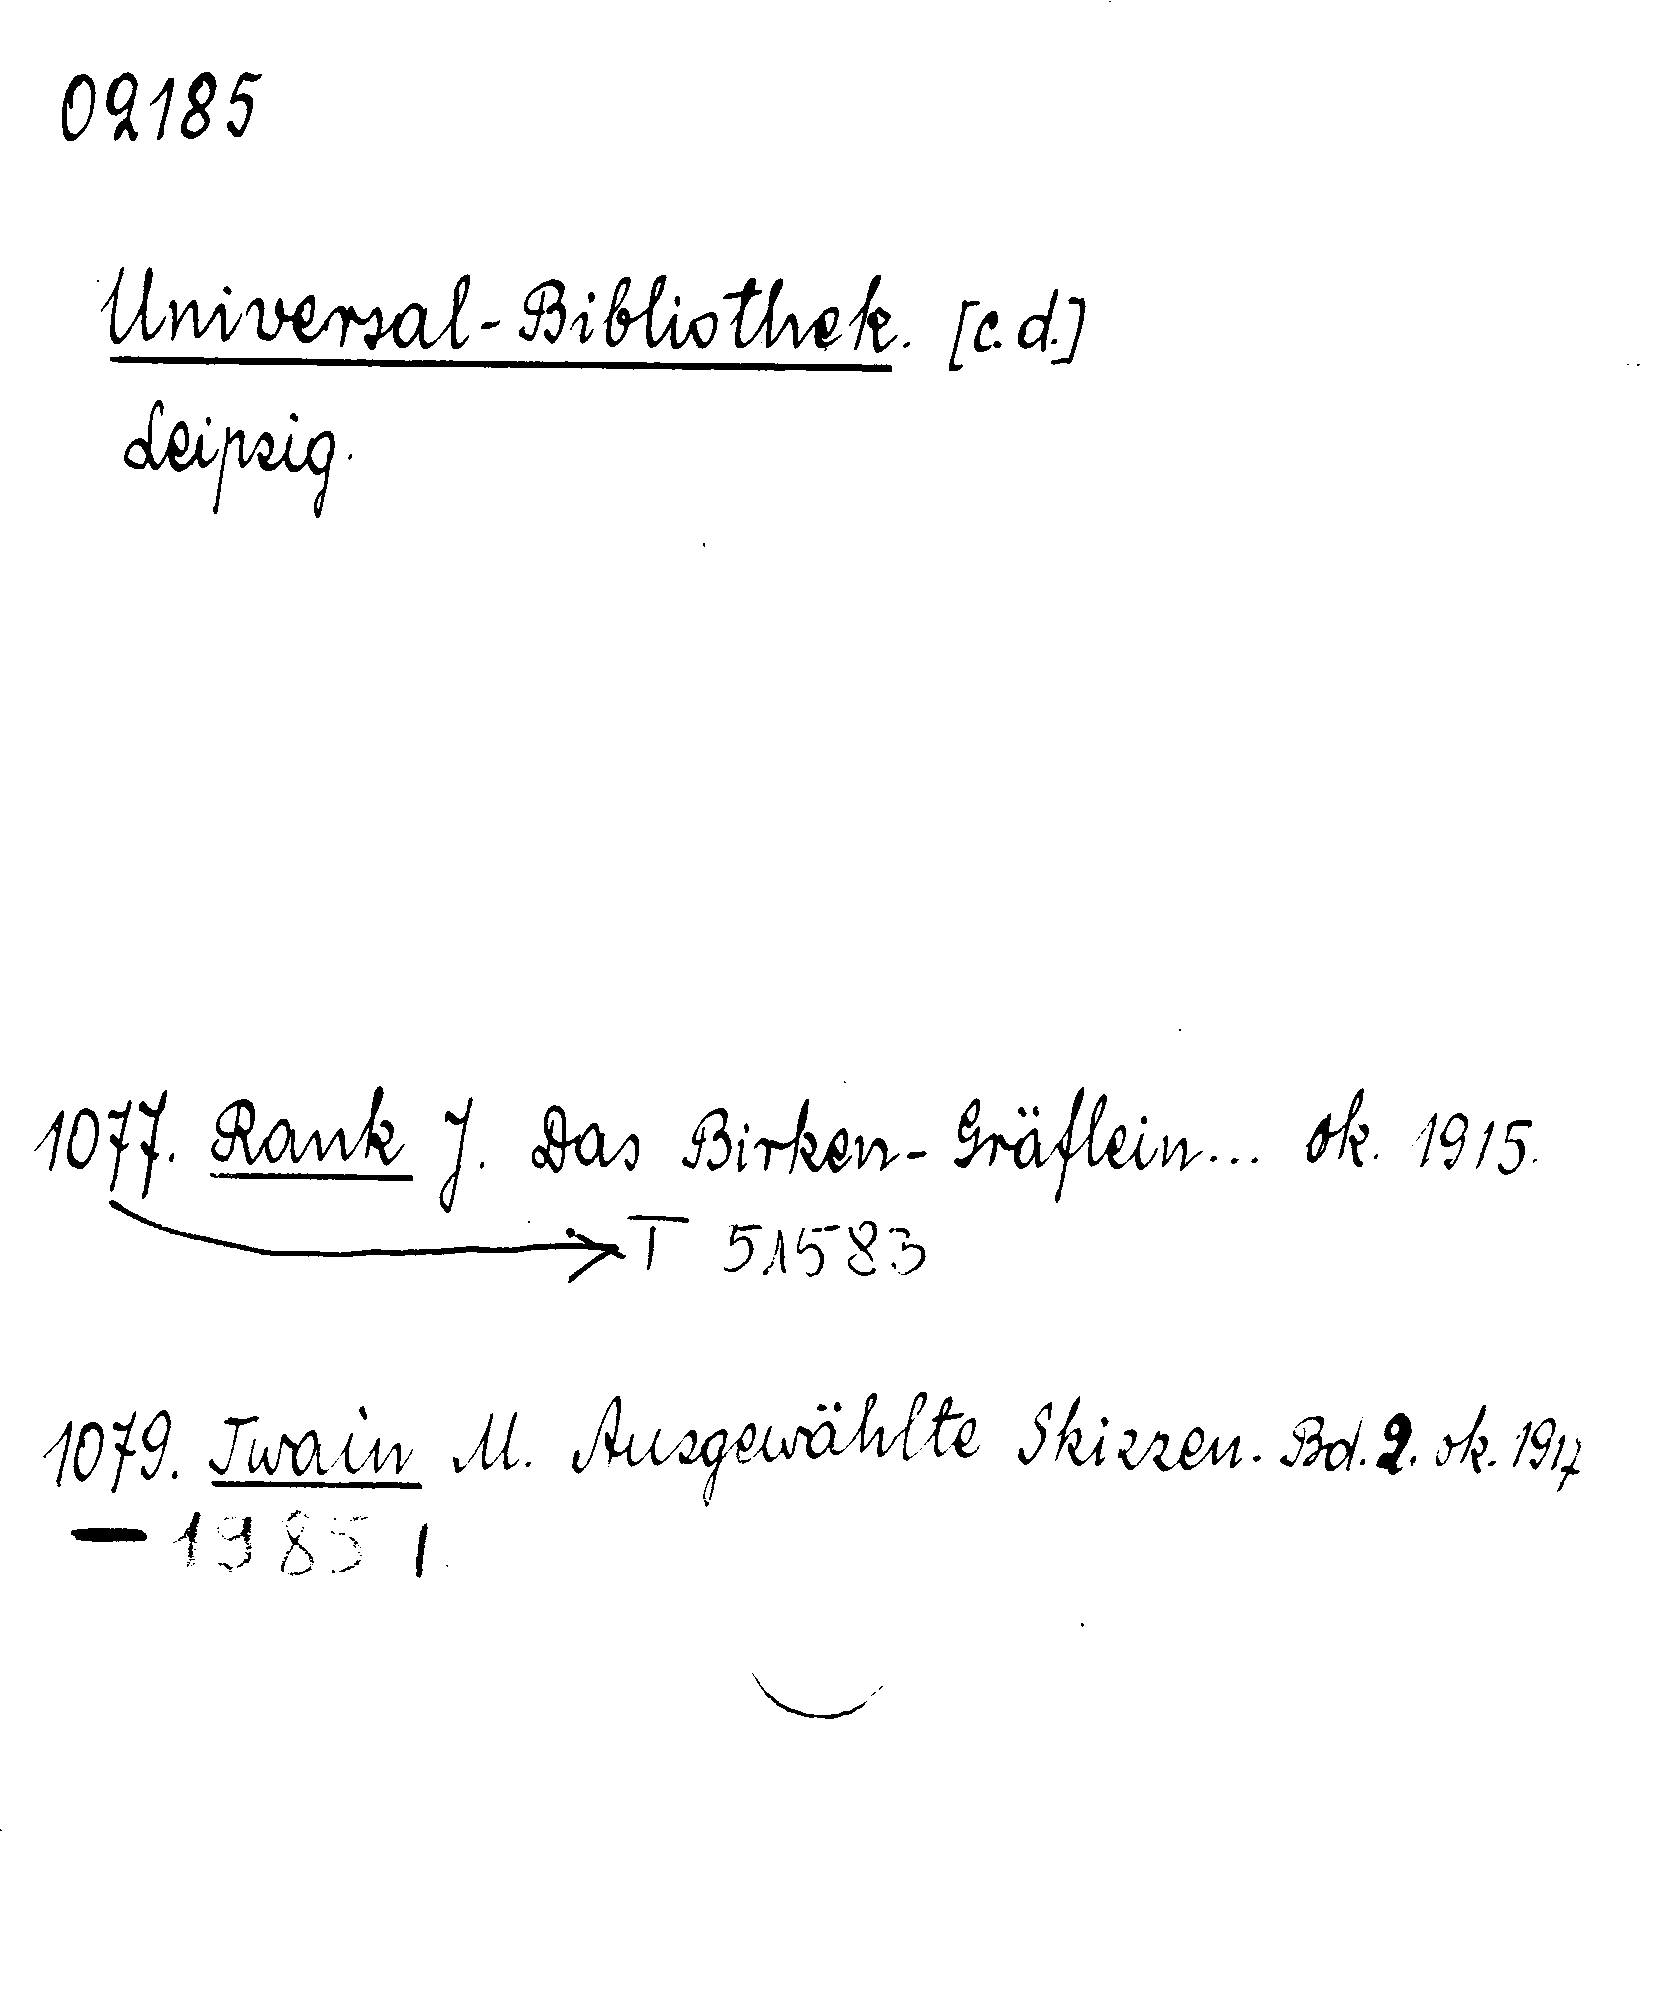 02185
Universal-Bibliothek. [c.d.]
Leipzig.
1077. Rank J. Das Birken-Gräflein... ok. 1915.
T 51583
1079. Twain M. Ausgewählte Skizzen. Bd. 2. ok. 1917
— 1985 1